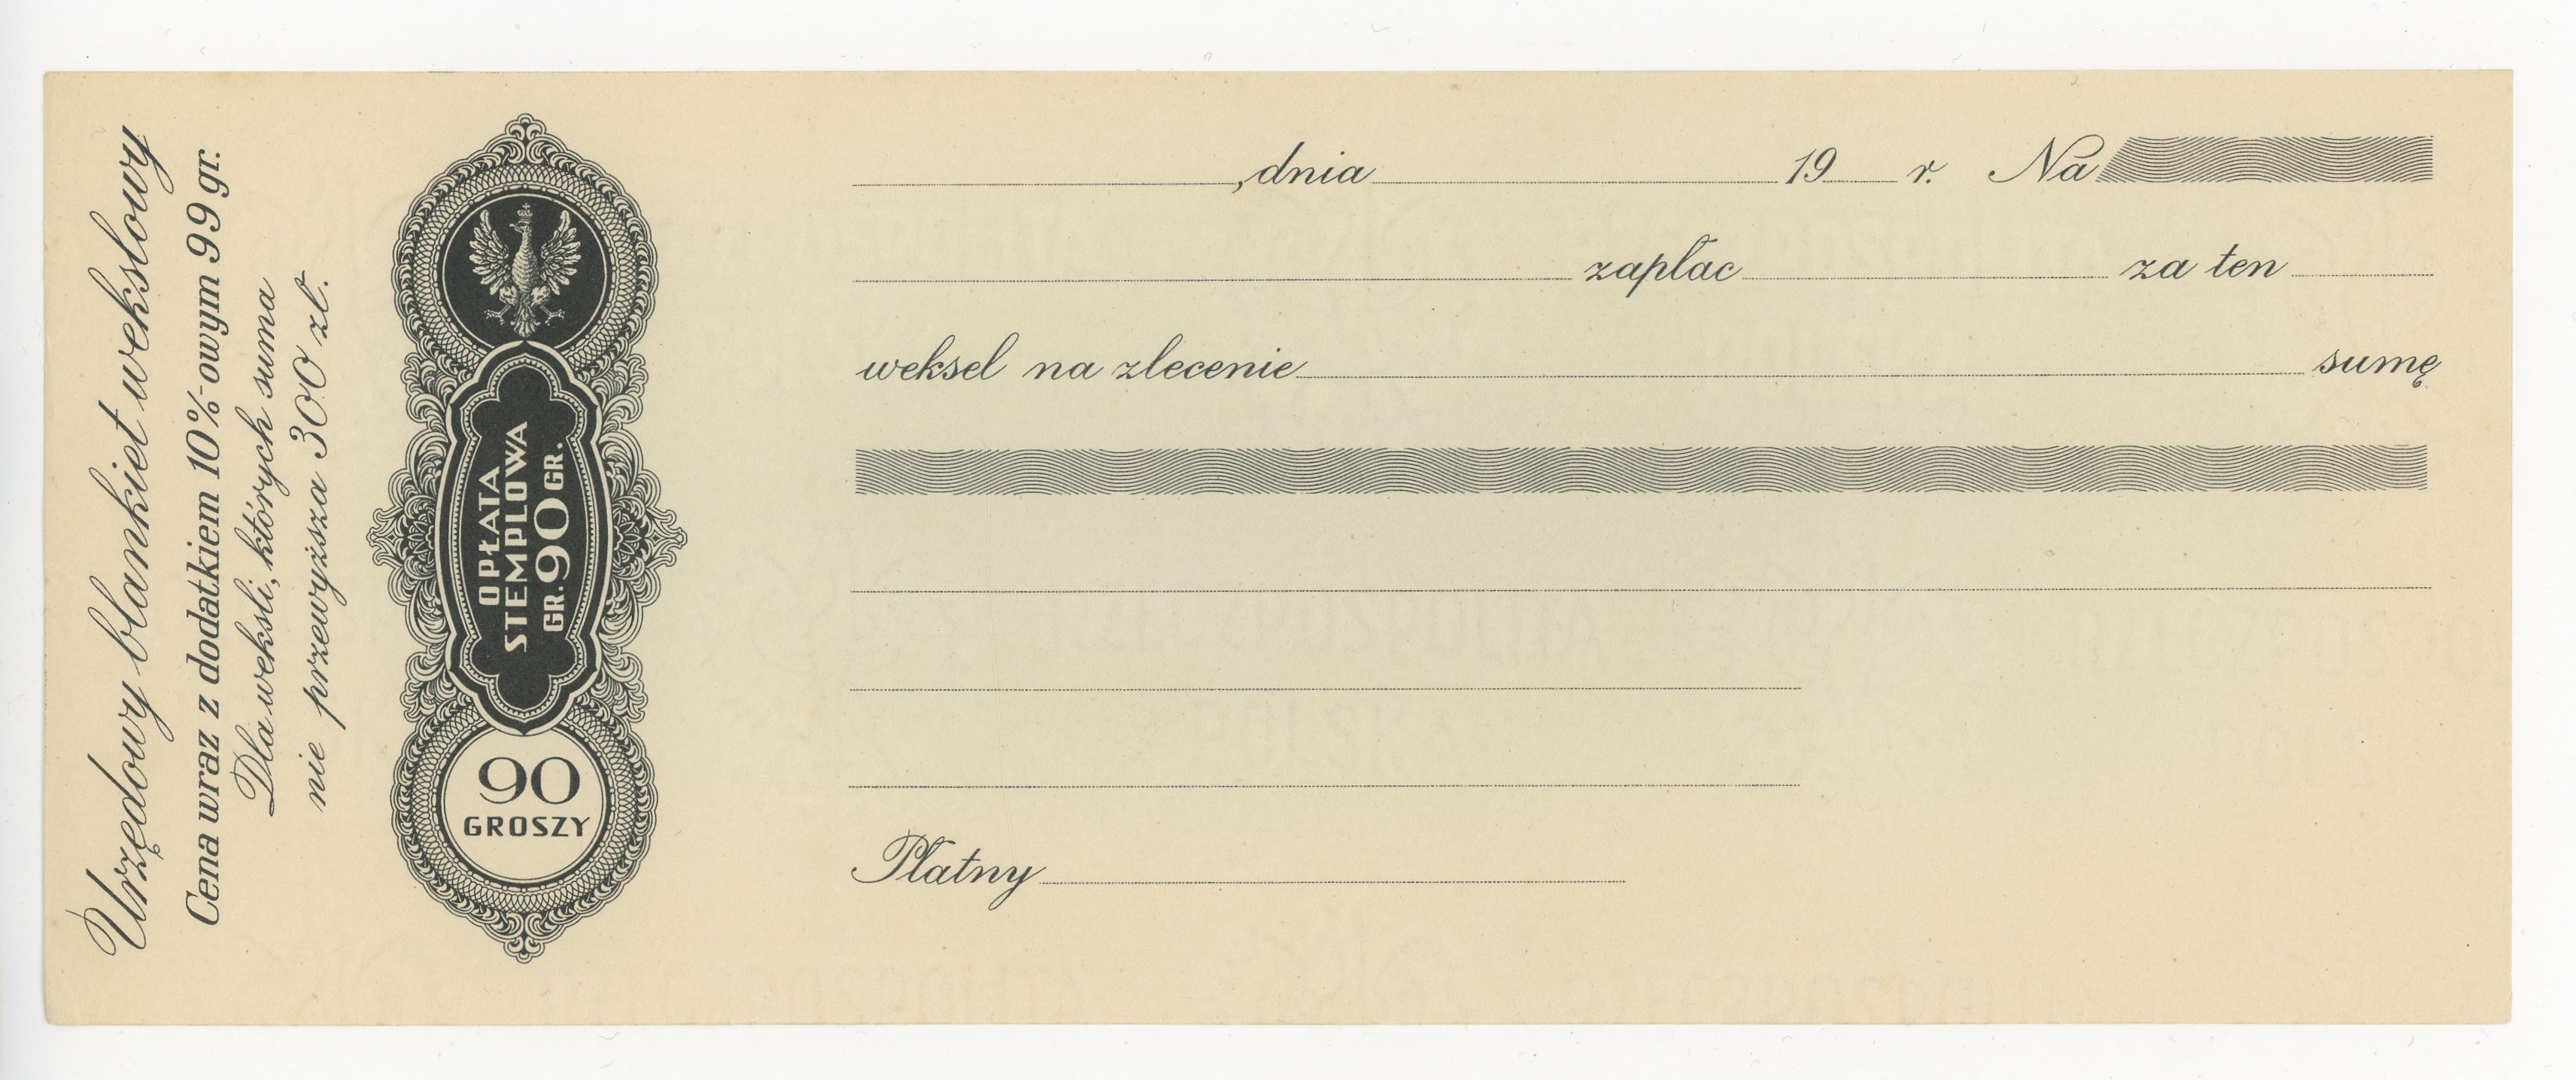 Urzędowy blankiet wekslowy
Cena wraz z dodatkiem 10%-owym 99 gr.
Dla weksli, których suma
nie przewyższa 300 zł.
OPŁATA
STEMPLOWA
GR. 90 GR.
90
GROSZY
, dnia 19 r. Na
zapłac za ten
weksel na zlecenie sumę
Płatny